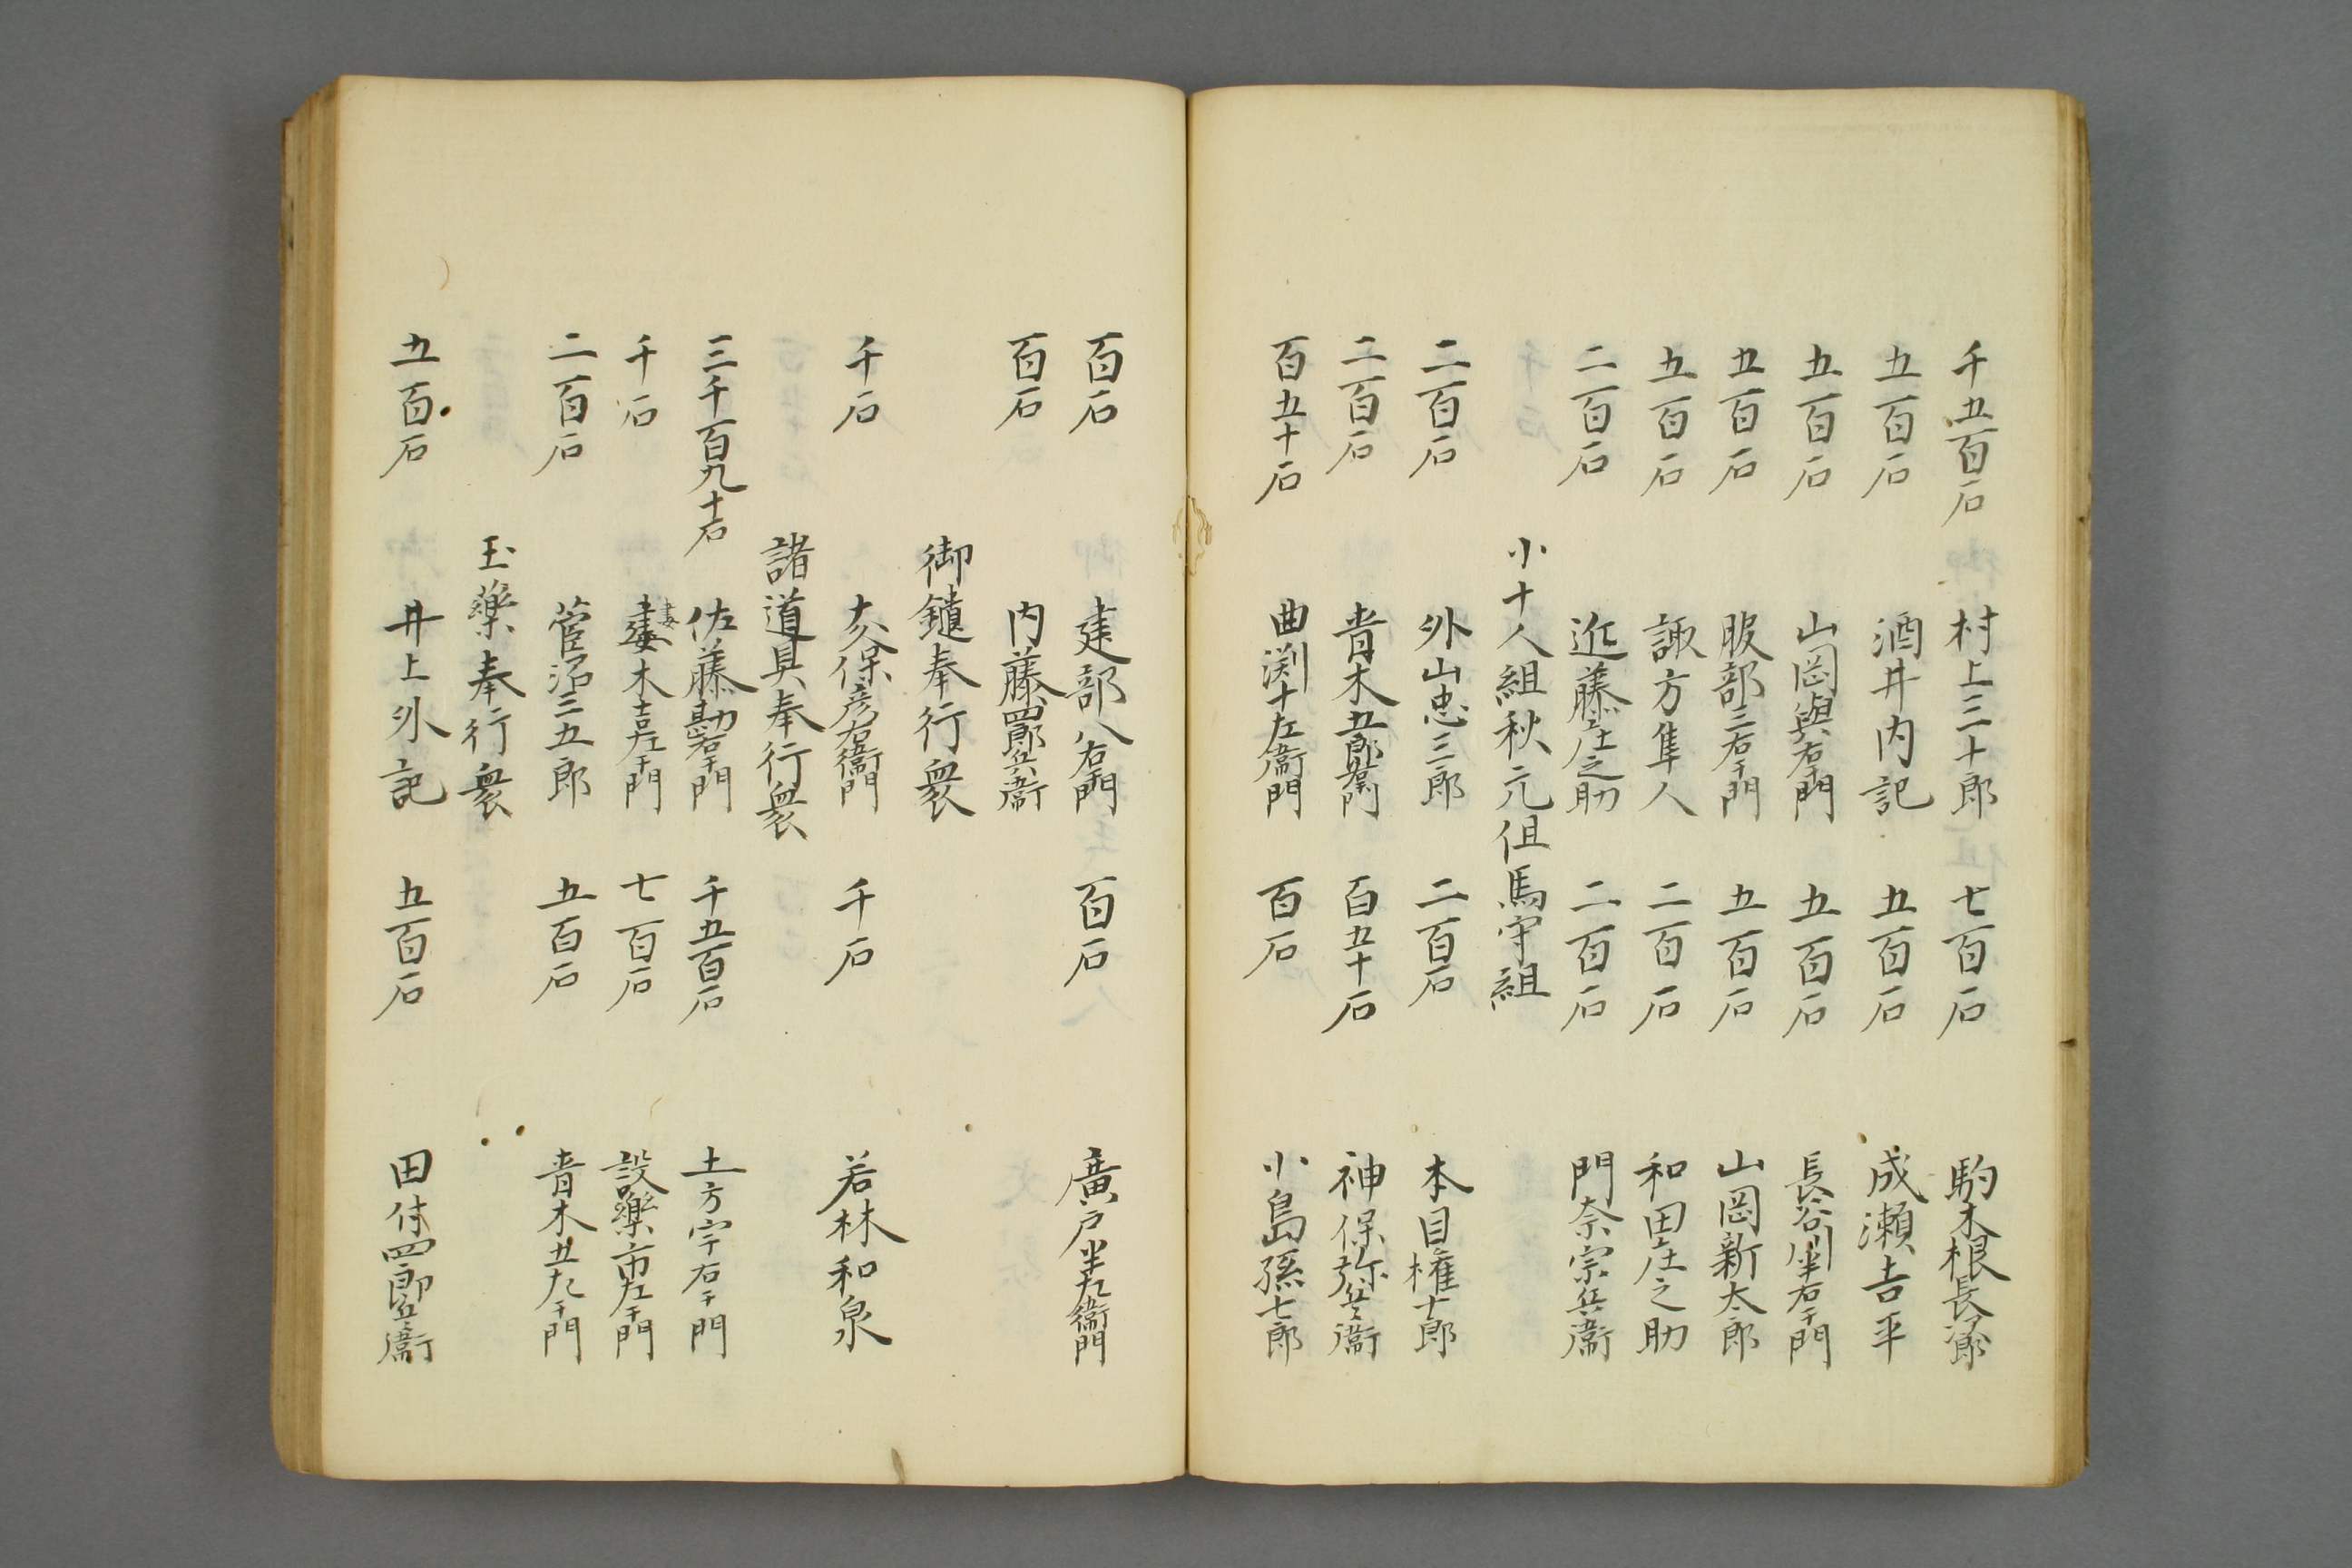 千五百石 村上三十郎 七百石 駒木根長次郎
五百石 酒井内記 五百石 成瀬吉平
五百石 山岡與右衛門 五百石 長谷川半右衛門
五百石 服部三右衛門 五百石 山岡新太郎
五百石 諏方隼人 二百石 和田庄之助
二百石 近藤庄之助 二百石 門奈宗兵衛
小十人組秋元但馬守組
二百石 外山忠三郎 二百石 本目権十郎
二百石 青木五郎左衛門 百五十石 神保弥兵衛
百五十石 曲渕十左衛門 百石 小島孫七郎
百石 建部八右衛門 百石 廣戸半左衛門
百石 内藤四郎兵衛
御鑓奉行衆
千石 大久保彦右衛門 千石 若林和泉
諸道具奉行衆
三千百九十石 佐藤勘右衛門 千五百石 土方宇右衛門
千石 妻木吉左衛門 七百石 設樂市左衛門
二百石 菅沼三五郎 五百石 青木五左衛門
玉藥奉行衆
五百石 井上外記 五百石 田付四郎兵衛